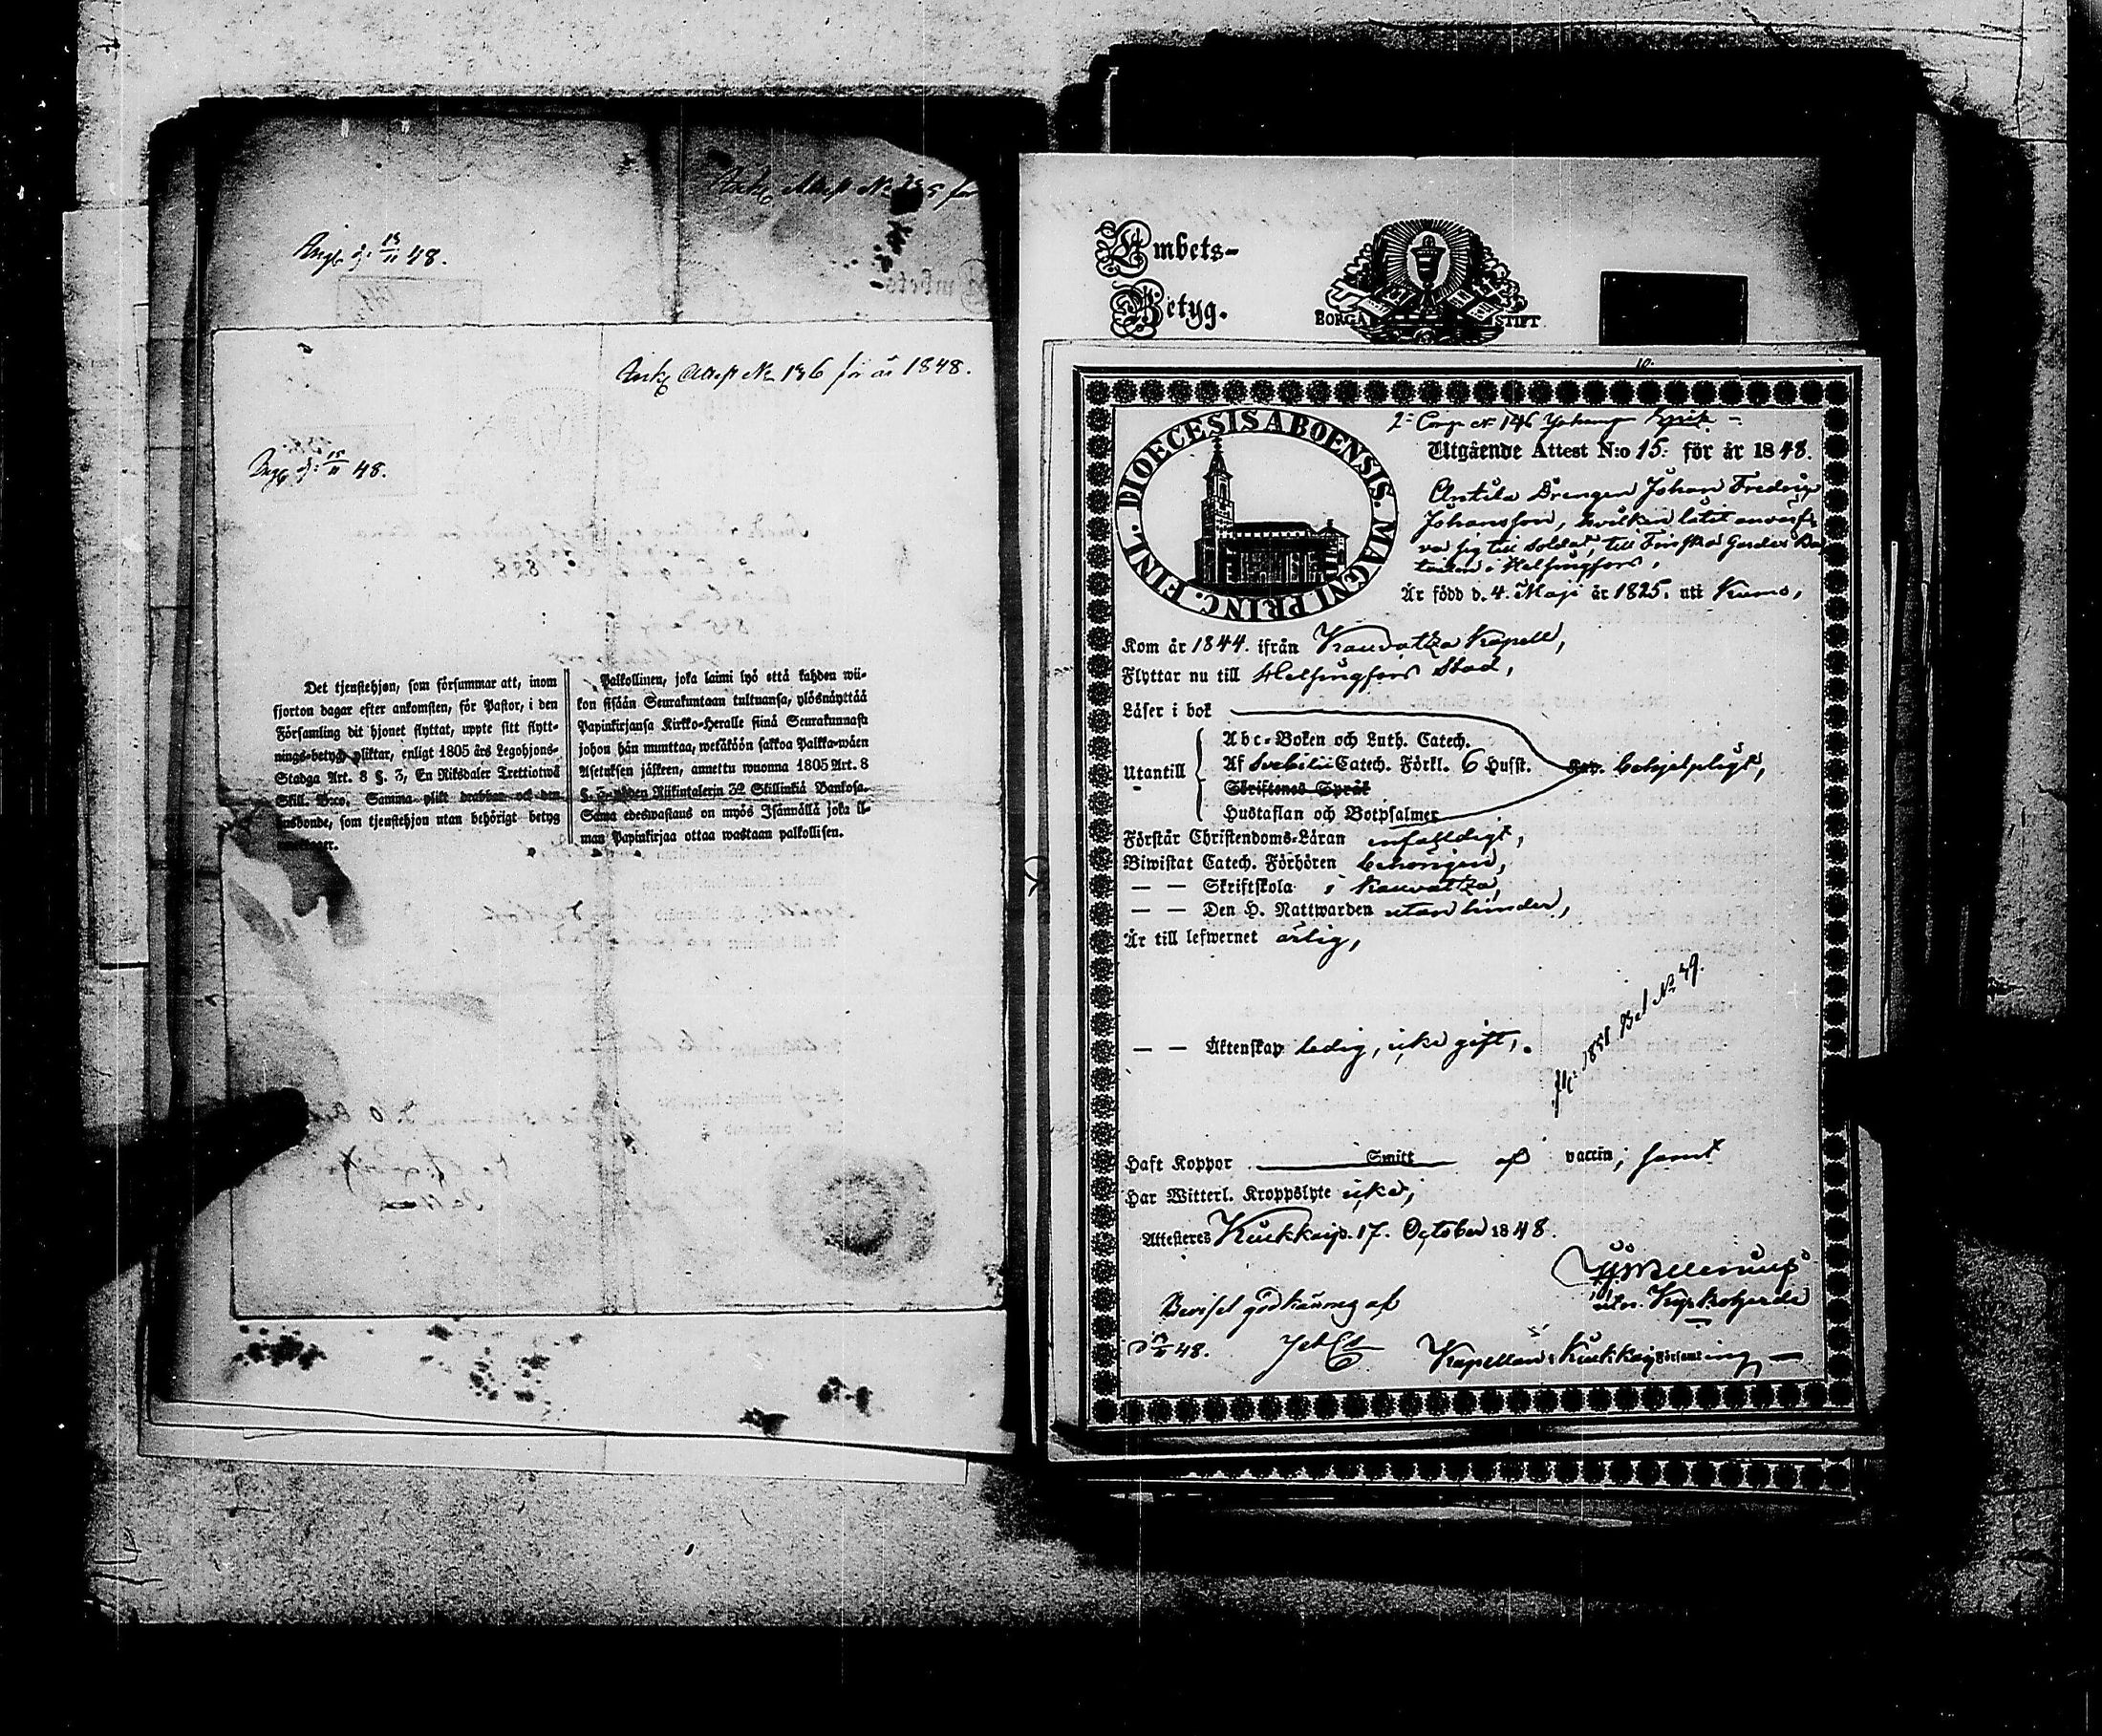 Ank. Attest No 135 för
Angb d: 13/11 48.
Ank. Attest No 136 för år 1848.
Angb d: 15/11 48.
Det tjenstehjon, som försummar att, inom
fjorton dagar efter ankomsten, för Pastor, i den
Församling dit hjonet flyttat, uppte sitt flytt-
nings-betyg pliktar, enligt 1805 års Legohjons-
Stadga Art. 8 §. 3, En Riksdaler Trettiotwå
Skill. B:co. Samma plikt drabbar och den
husbonde, som tjenstehjon utan behörigt betyg
Palkollinen, joka laimi lyö että kahden wii-
kon sisään Seurakuntaan tultuansa, ylösnäyttää
Papinkirjansa Kirkko-Heralle siinä Seurakunnasa
johon hän muuttaa, wetäköön sakkoa Palkka-wäen
Asetuksen jälkeen, annettu wuonna 1805 Art. 8
§. 3. yhden Riikintalerin 32 Skillinkiä Bankosa.
Sama edeswastaus on myös Isännällä joka il-
man Papinkirjaa ottaa wastaan palkollisen.
Embets-
Betyg.
BORGÅ STIFT
DIOECESIS ABOENSIS. MAGNI PRINC. FINL.
2: Comp. No 146 Johan
Utgående Attest N:o 15. för år 1848.
Antila Drengen Johan Fredrik
Johansson, hvilken låtit anvärf-
va sig till Soldat, till Finska Gardes Ba
taillon i Helsingfors,
Är född d. 4. Maji år 1825. uti Kumo,
Kom år 1844. ifrån Kauvatza Kapell,
Flyttar nu till Helsingfors Stad,
Läser i bok
Utantill
Abc-Boken och Luth. Catech.
Af Svebilii Catech. Förkl. 6 Hufst. behjelpligt,
Skriftenes Språk
Hustaflan och Botpsalmer
Förstår Christendoms-Läran enfaldigt,
Biwistat Catech. Förhören behörigen,
— — Skriftskola i Kauvatza,
— — Den H. Nattwarden utan hinder,
Är till lefwernet ärlig,
— — Äktenskap ledig, icke gift,
1851 Bet No 49.
Haft Koppor Smitt af vaccin, samt
Har Witterl. Kroppslyte icke,
Attesteras Kiukkais d. 17. October 1848.
Beviset godkännes af
d 13/11 48.
Kapellan i Kiukkais Församling